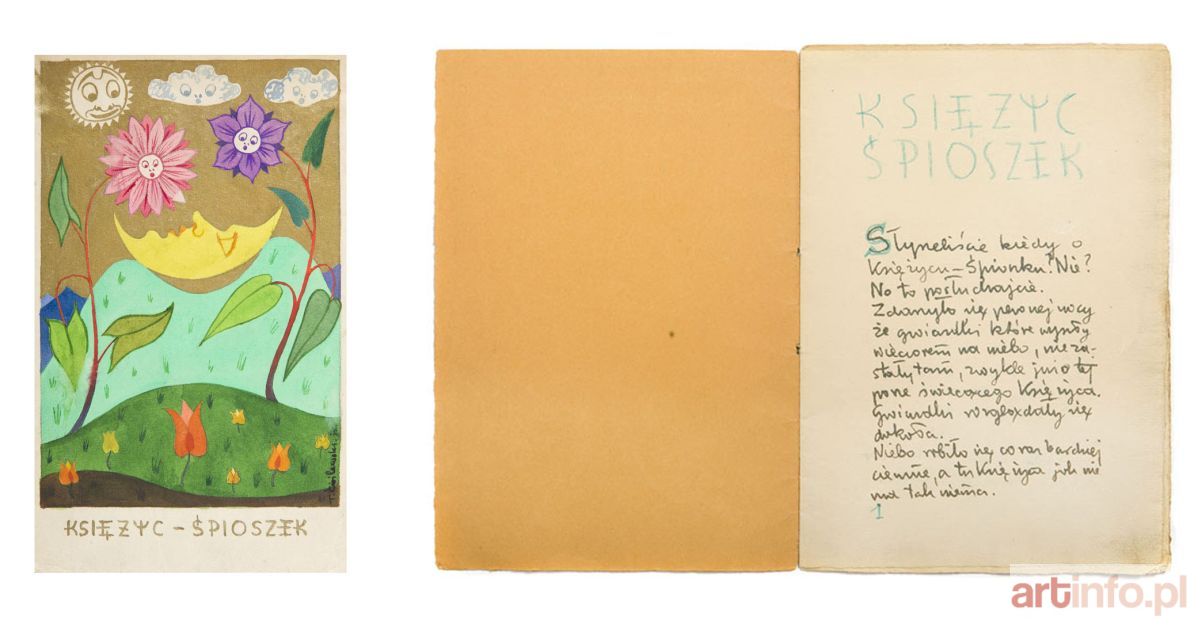 KSIĘŻYC – ŚPIOSZEK
KSIĘŻYC
ŚPIOSZEK
Słyneliście kiedy o
Księżycu – Śpionku? Nie?
No to posłuchajcie.
Zdarzyło się pewnej nocy
że gwiazdki które wyszły
wieczorem na niebo, nieza-
stały tam, zwykle już o tej
porze świecącego Księżyca.
Gwiazdki rozglądały się
dokoła.
Niebo robiło się coraz bardziej
ciemne, a tu Księżyca jak nie
ma tak niema.
1
artinfo.pl